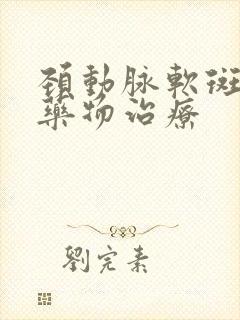 頚動脉軟斑
藥物治療
劉完素